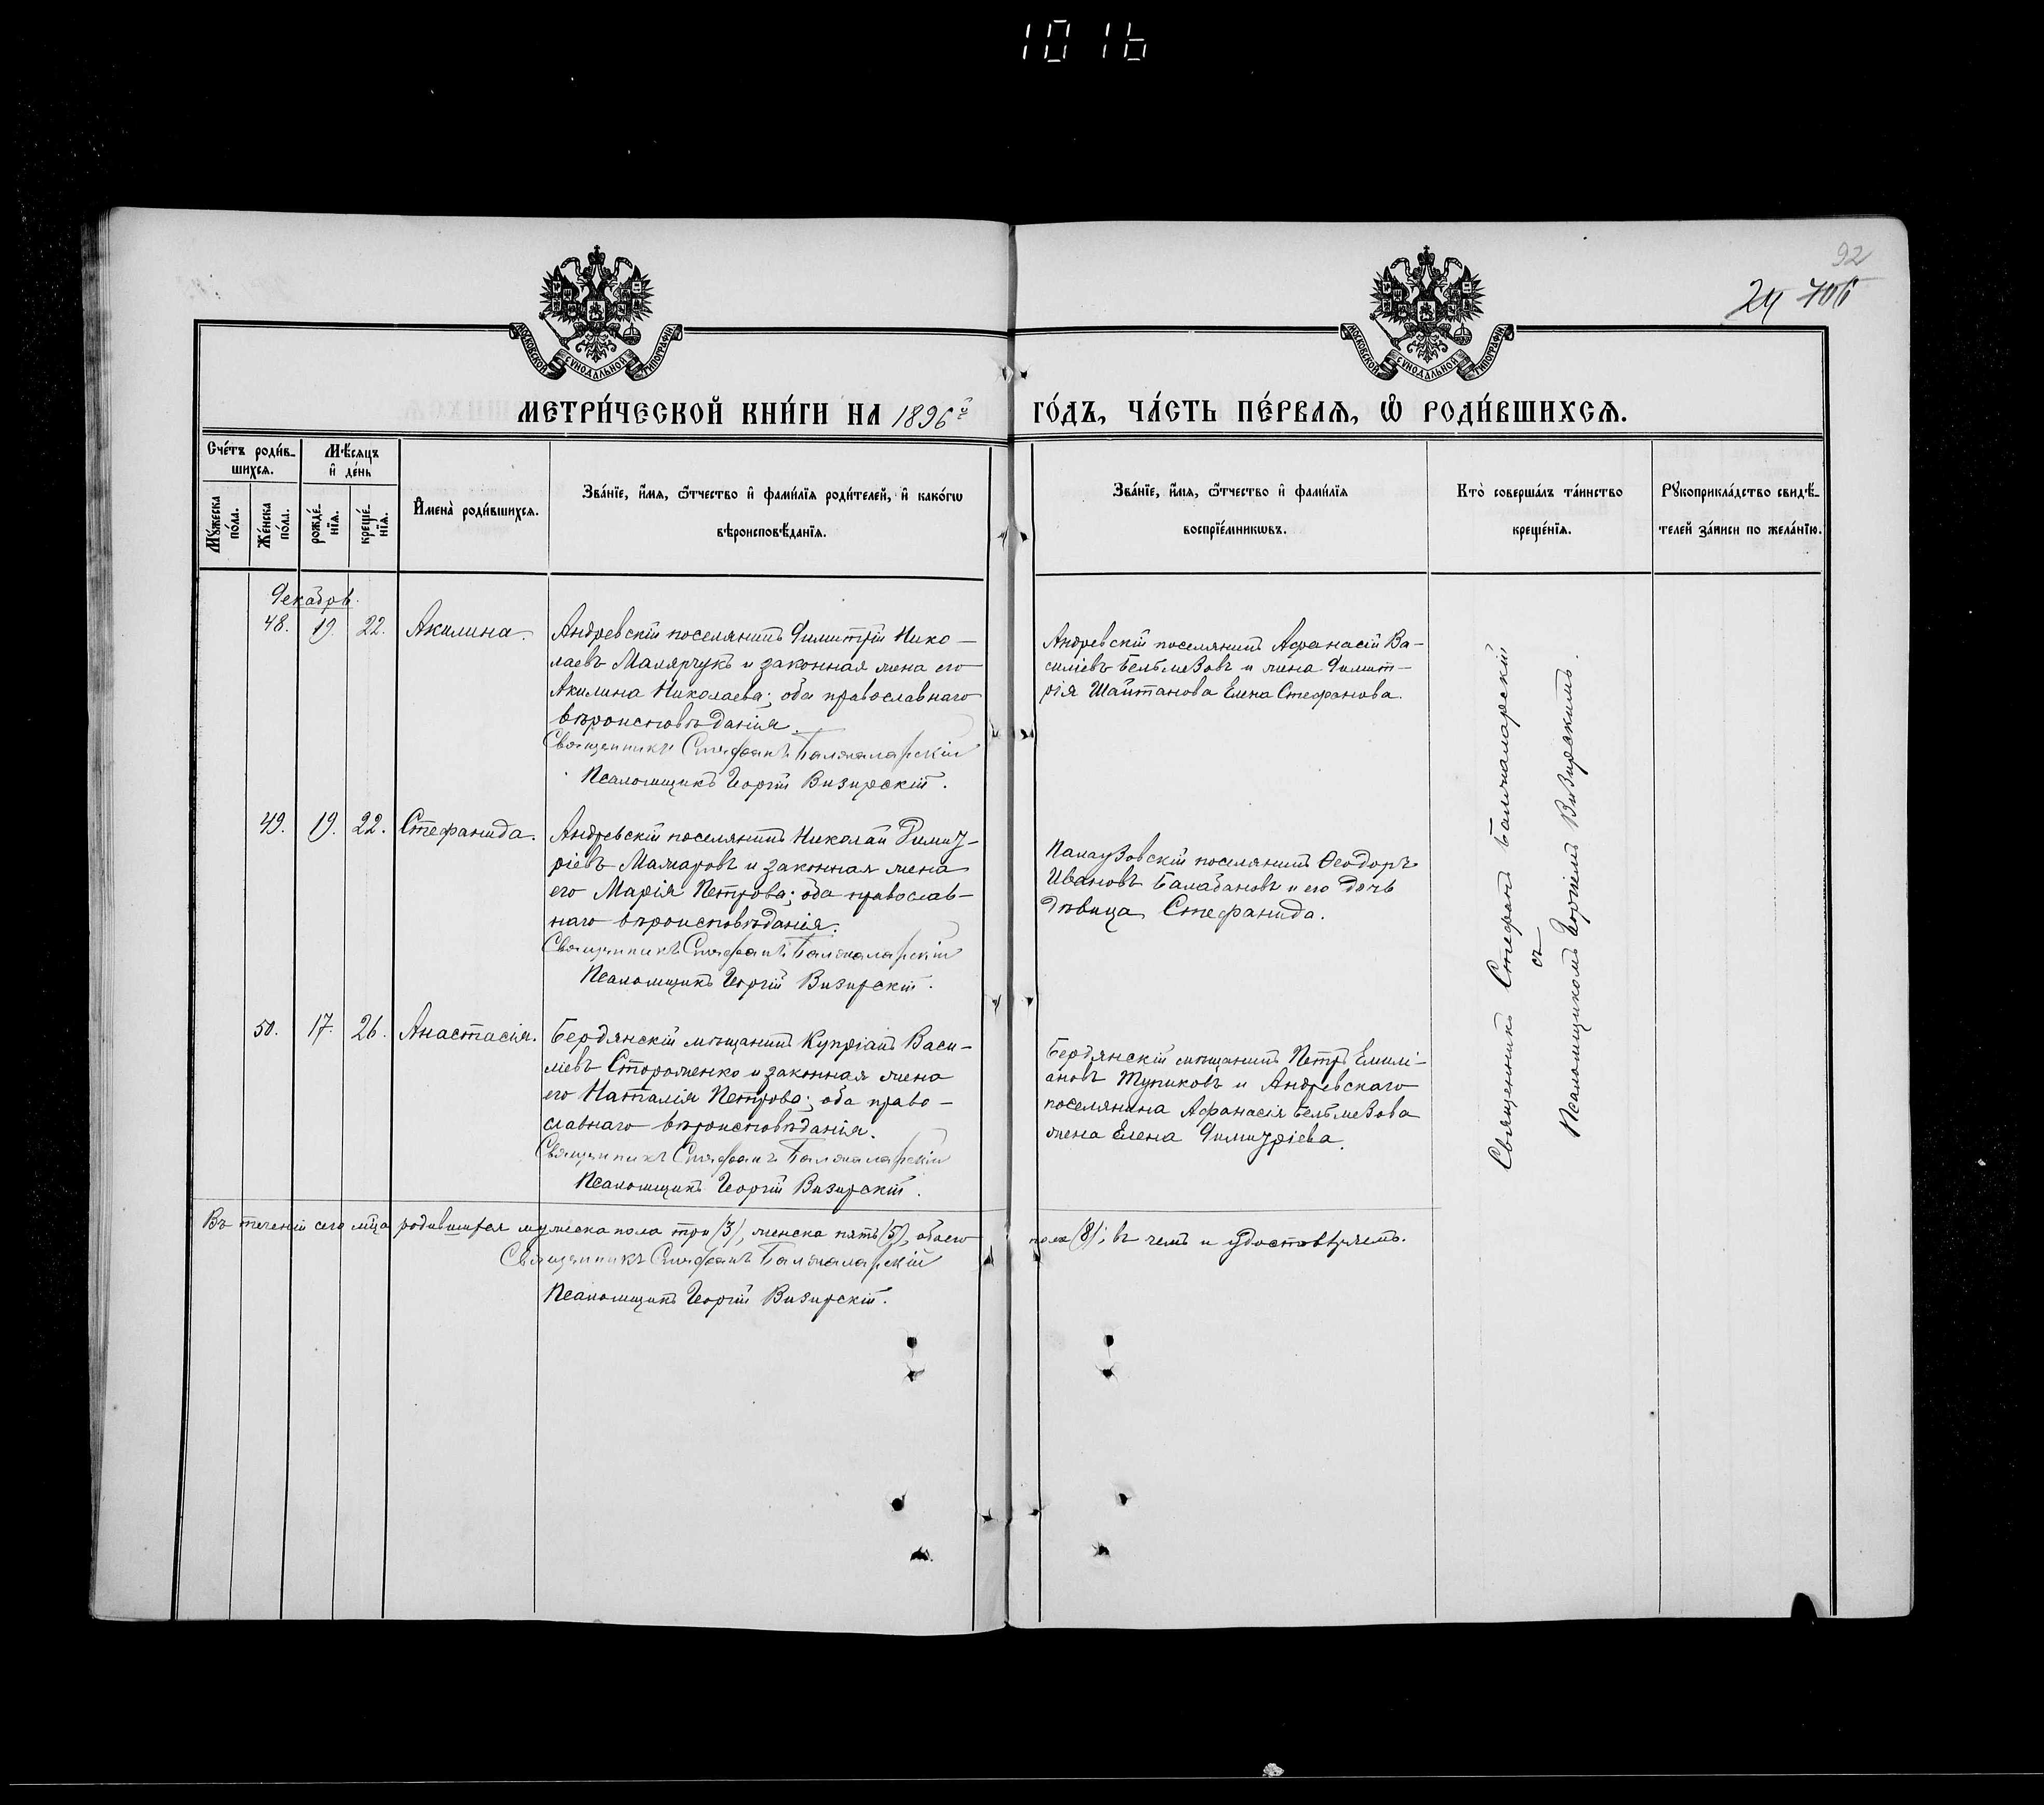 1016
92
24 706
МОСКОВСКОЙ СУНОДАЛЬНОЙ ТИПОГРАФІИ
МОСКОВСКОЙ СУНОДАЛЬНОЙ ТИПОГРАФІИ
МЕТРИ́ЧЕСКОЙ КНИ́ГИ НА 1896й ГО́ДЪ, ЧА́СТЬ ПЕ́РВАЯ, Ѽ РОДИ́ВШИХСЯ.
Сче́тъ роди́в-
шихся.
Мꙋ́жеска по́ла.
Же́нска по́ла.
Мѣ́сяцъ
и҆ де́нь
рожде́-
нїя.
креще́-
нїя.
И҆мена̀ роди́вшихся.
Зва́нїе, и҆́мя, ѻ҆́тчество и҆ фами́лїя роди́телей, и҆ како́гѡ
вѣроисповѣ́данїя.
Зва́нїе, и҆́мя, ѻ҆́тчество и҆ фами́лїя
воспрїе́мникѡвъ.
Кто̀ соверша́лъ та́инство
креще́нїя.
Рꙋкоприкла́дство свидѣ́-
телей за́писи по жела́нїю.
Декабрь.
48. 19. 22. Акилина.
Андревскій поселянинъ Димитрій Нико-
лаевъ Малярчукъ и законная жена его
Акилина Николаева; оба православнаго
вѣроисповѣданія.
Священникъ Стефанъ Балжаларскій
Псаломщикъ Георгій Визирскій.
Андревскій поселянинъ Афанасій Ва-
силіевъ Бельмезовъ и жена Димит-
рія Шайтанова Елена Стефанова.
49. 19. 22. Стефанида.
Андревскій поселянинъ Николай Димит-
ріевъ Мамаровъ и законная жена
его Марія Петрова; оба православ-
наго вѣроисповѣданія.
Священникъ Стефанъ Балжаларскій
Псаломщикъ Георгій Визирскій.
Палаузовскій поселянинъ Ѳеодоръ
Ивановъ Балабановъ и его дочь
дѣвица Стефанида.
50. 17. 26. Анастасія.
Бердянскій мѣщанинъ Купріанъ Васи-
ліевъ Стороженко и законная жена
его Наталія Петрова; оба право-
славнаго вѣроисповѣданія.
Священникъ Стефанъ Балжаларскій
Псаломщикъ Георгій Визирскій.
Бердянскій мѣщанинъ Петръ Емилі-
ановъ Тупиковъ и Андревскаго
поселянина Афанасія Бельмезова
жена Елена Димитріева.
Священникъ Стефанъ Балжаларскій
съ
Псаломщикомъ Георгіемъ Визирскимъ.
Въ теченіи сего мѣца родившихся мужеска пола три (3), женска пять (5), обоего пола (8); въ чемъ и удостовѣряемъ.
Священникъ Стефанъ Балжаларскій
Псаломщикъ Георгій Визирскій.